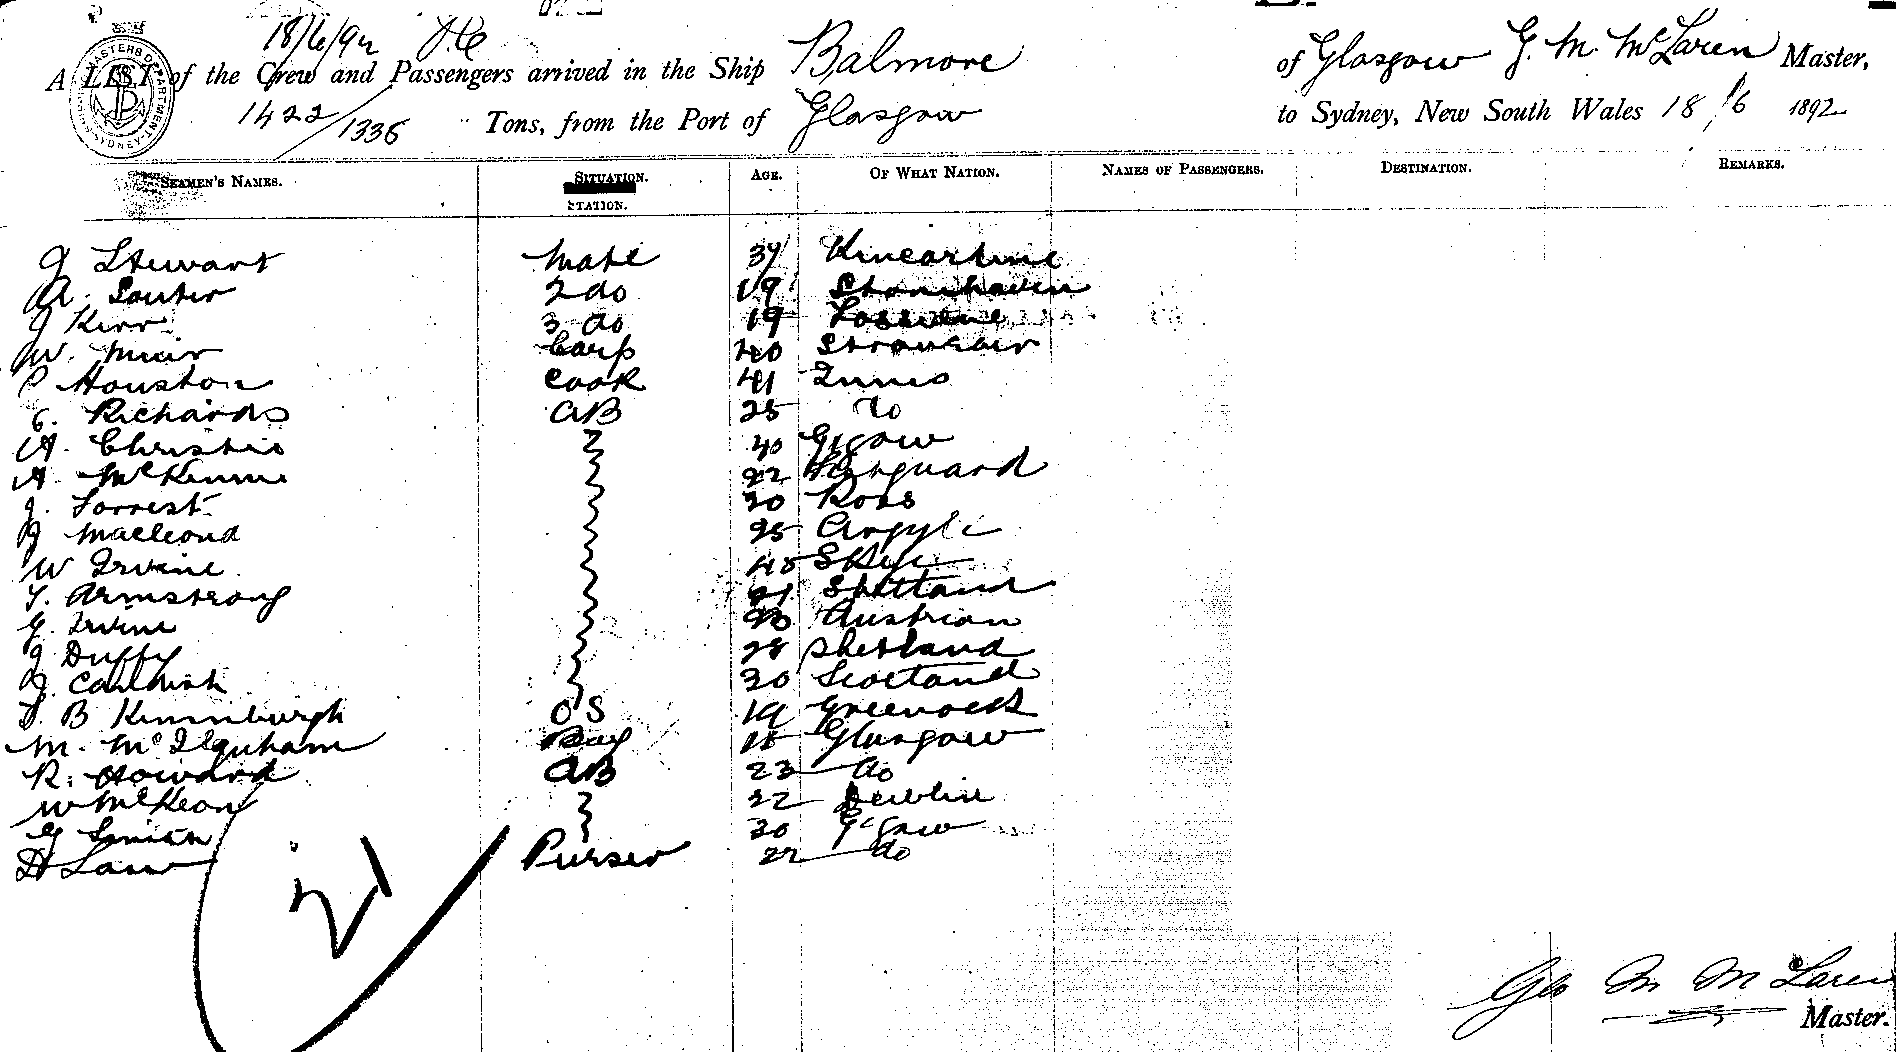 18/6/92
A LIST of the Crew and Passengers arrived in the Ship Balmore of Glasgow G. M. McLaren Master,
1422/1336 Tons, from the Port of Glasgow to Sydney, New South Wales 18/6 1892
SEAMEN'S NAMES. SITUATION. AGE. OF WHAT NATION. NAMES OF PASSENGERS. DESTINATION. REMARKS.
STATION.
J Stewart Mate 37 Kincardine
A. Souter 2 do 19 Stonehaven
J Kerr 3 do 19
W. Muir Carp 40 Stranraer
Houston Cook 41
C. Richards AB 25 do
A. Christie 40 Glgow
A. McKinnie 22
J. Forrest 30 Ross
Macleond 25 Argyle
W Irvine 45 Skye
T. Armstrong 21 Shetland
G. Irvine Austrian
J Duffy 28 Shetland
J. 30 Scotland
D. B Kinninburgh OS 19 Greenock
M. Boy 18 Glasgow
R. Howard AB 23 do
W McKeon 22 Dublin
G Smith 30 Gsgow
H Law Purser 22 do
21
Geo M McLaren
Master.